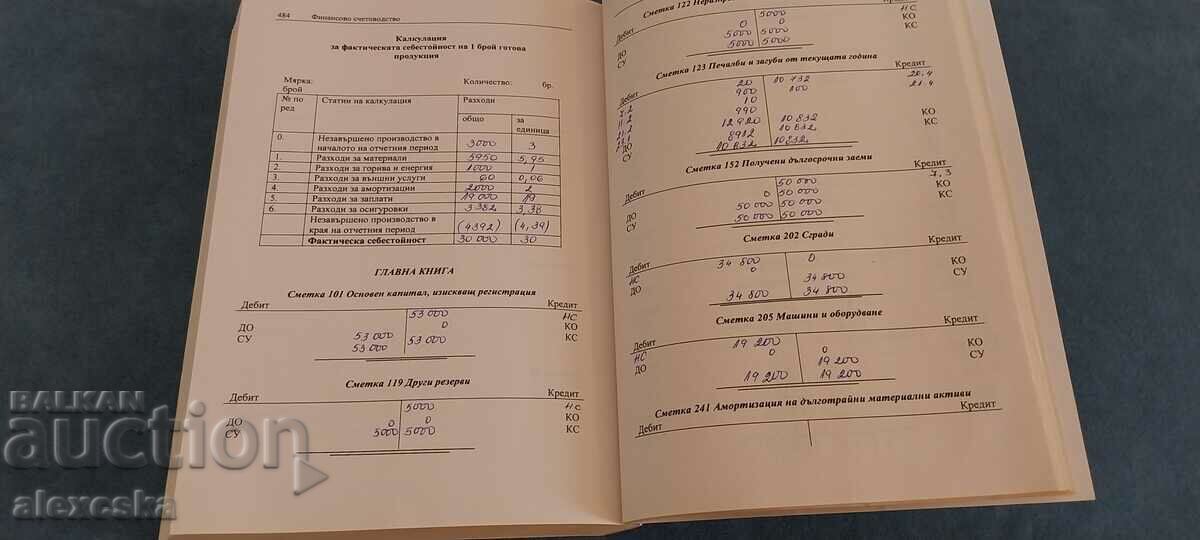 484 Финансово счетоводство
Калкулация
за фактическата себестойност на 1 брой готова
продукция
Мярка: Количество: бр.
брой
№ по ред Статии на калкулация Разходи
общо за единица
0. Незавършено производство в началото на отчетния период 3000 3
1. Разходи за материали 5950 5,95
2. Разходи за горива и енергия 1000 1
3. Разходи за външни услуги 60 0,06
4. Разходи за амортизации 2000 2
5. Разходи за заплати 19 000 19
6. Разходи за осигуровки 3382 3,38
Незавършено производство в края на отчетния период (4392) (4,39)
Фактическа себестойност 30 000 30
ГЛАВНА КНИГА
Сметка 101 Основен капитал, изискващ регистрация
Дебит Кредит
53 000 НС
ДО 0 КО
СУ 53 000 53 000 КС
53 000
Сметка 119 Други резерви
Дебит Кредит
5000 НС
ДО 0 0 КО
СУ 5000 5000 КС
Сметка 122
Дебит Кредит
5000 НС
0 0 КО
ДО 5000 5000 КС
СУ 5000 5000
Сметка 123 Печалби и загуби от текущата година
Дебит Кредит
20 10 732 20.4
7.2 900 100 21.4
11.2 10
21.2 990 КО
12 920 10 832 КС
ДО 8912 10 832
СУ 10 832 10 832
Сметка 152 Получени дългосрочни заеми
Дебит Кредит
50 000 7,3
0 50 000 КО
ДО 50 000 50 000 КС
СУ 50 000 50 000
Сметка 202 Сгради
Дебит Кредит
НС 34 800 0 КО
ДО 0 34 800 СУ
34 800 34 800
Сметка 205 Машини и оборудване
Дебит Кредит
НС 19 200 0 КО
ДО 0 19 200 СУ
19 200 19 200
Сметка 241 Амортизация на дълготрайни материални активи
Дебит Кредит
BALKAN
auction
alexcska